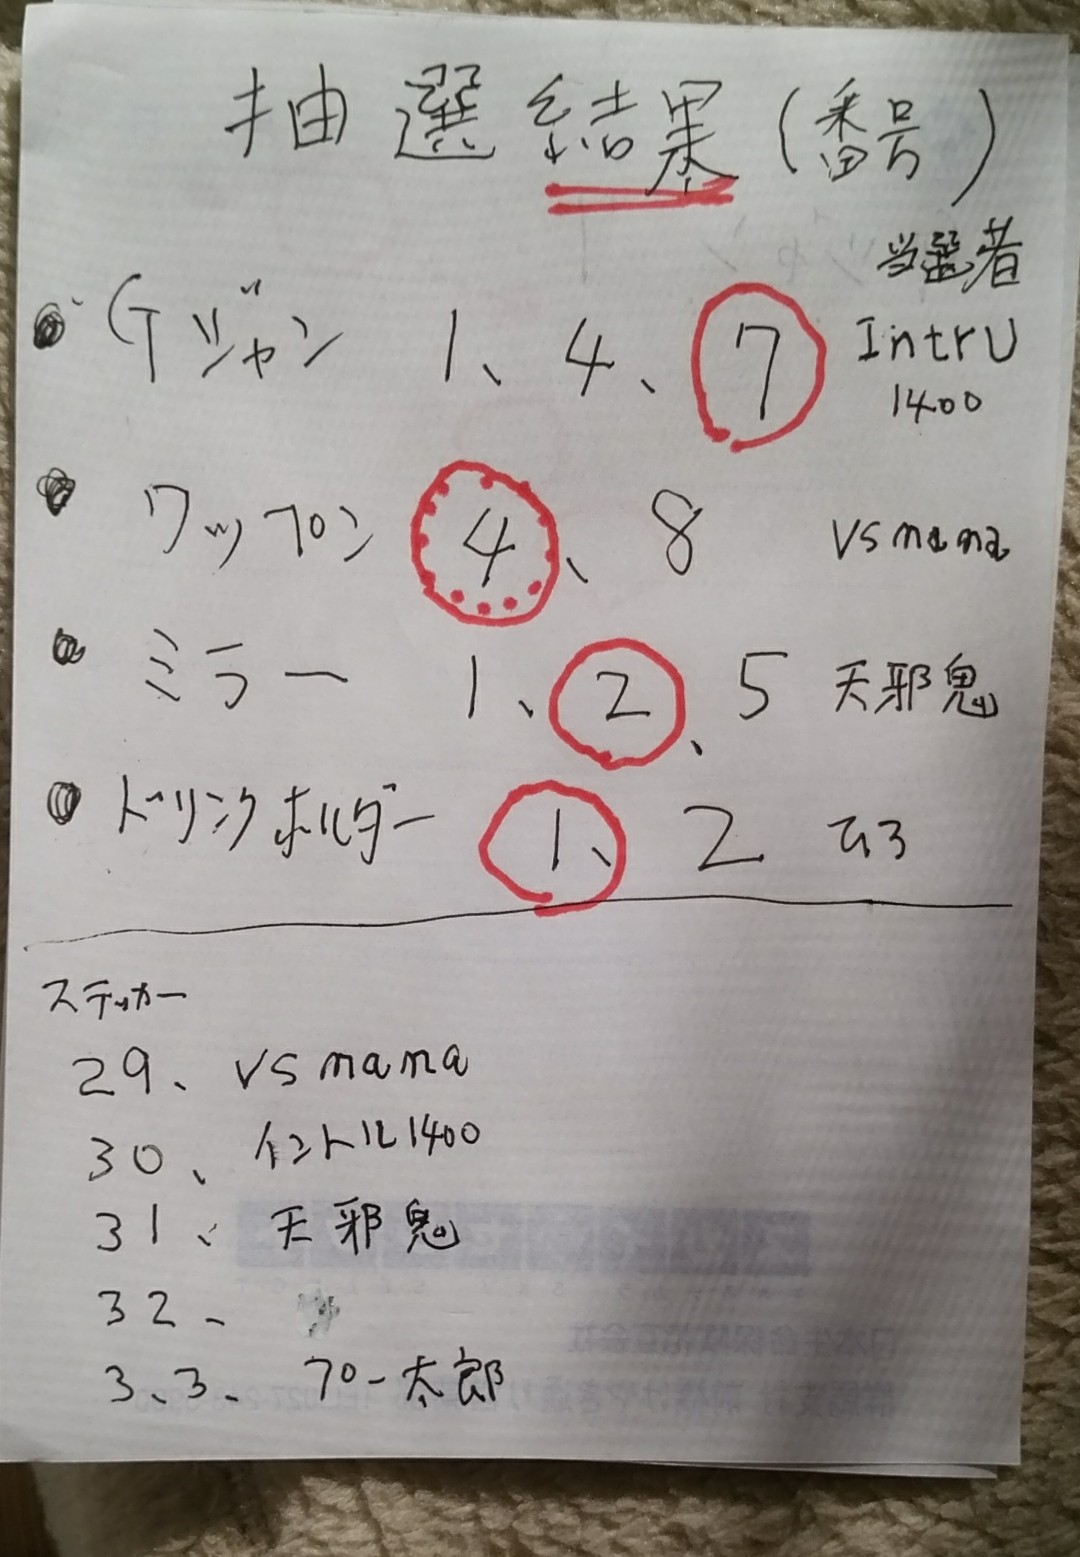 抽選結果(番号)
当選者
Gジャン 1、4、7 IntrU
1400
ワッペン 4、8 vsmama
ミラー 1、2、5 天邪鬼
ドリンクホルダー 1、2
ステッカー
29、vsmama
30、イントル1400
31、天邪鬼
32、
3.3、プー太郎